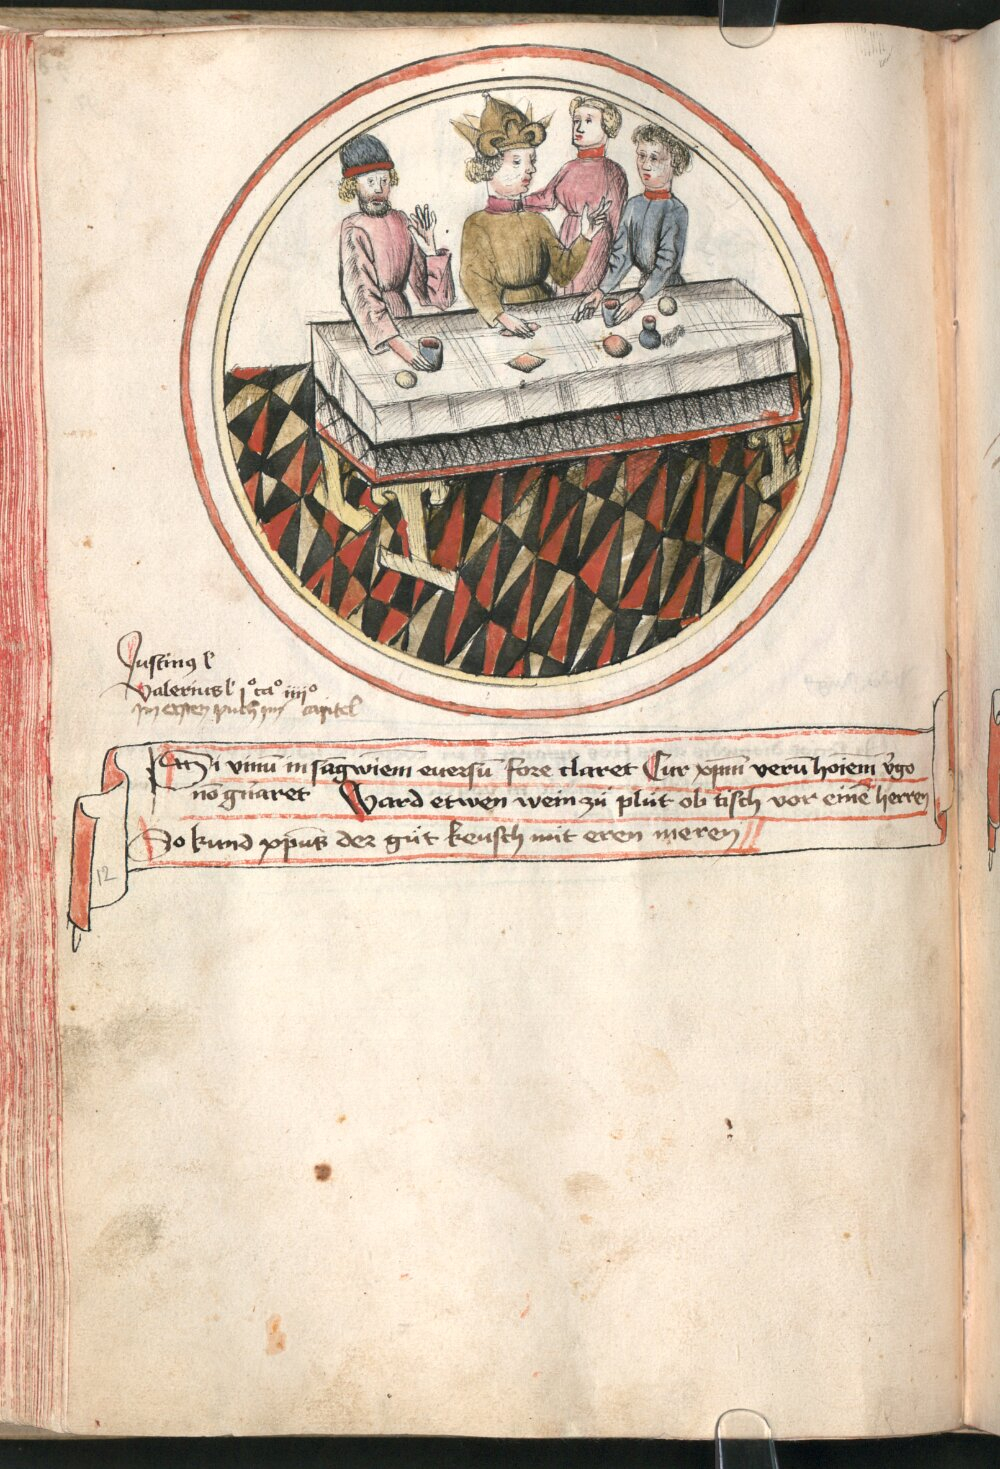 Justinus l'
Valerius l' j° ca° iiij°
im ersten puch im capitel
Si vinū in sāgwiem euersū fore claret Cur xpm̄ verū hoiem v̄go
nō gn̄aret Ward etwen wein zü plüt ob tisch vor einē herren
So kund xpūs der güt keusch mit eren meren
12